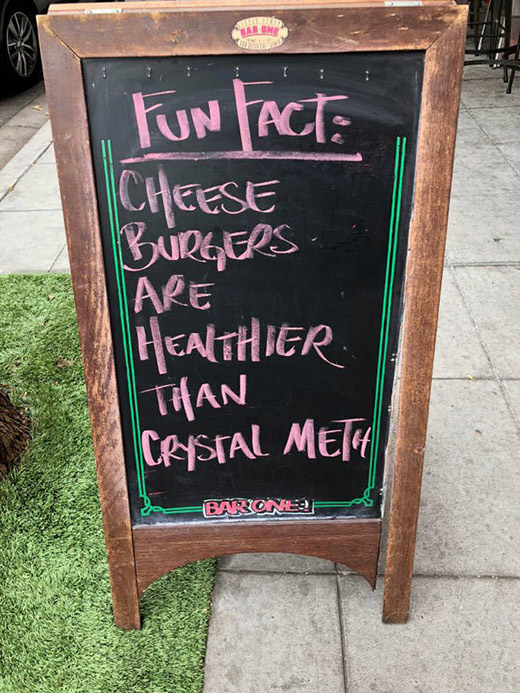 BAR-ONE
FUN FACT:
CHEESE
BURGERS
ARE
HEALTHIER
THAN
CRYSTAL METH
BAR ONE